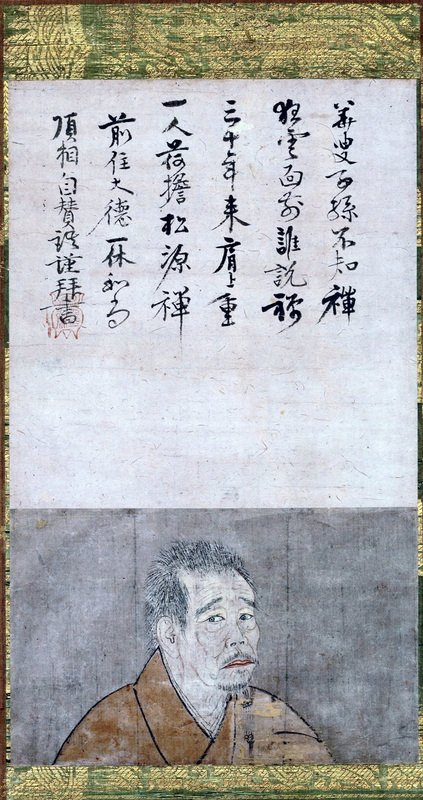 華叟子孫不知禅
狂雲面前誰説禅
三十年来肩上重
一人荷擔松源禅
前住大徳一休和尚
頂相自賛 謹拝書